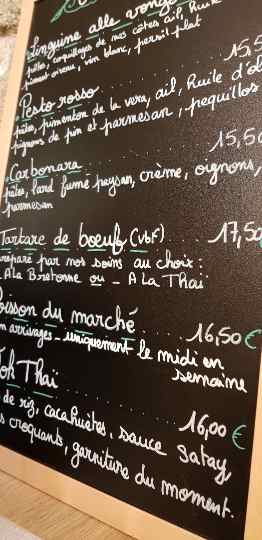 Linguine alle vongole
pâtes, coquillages de nos côtes, ail, huile
piment oiseau, vin blanc, persil plat
15,5
Pesto rosso
pâtes, pimenton de la vera, ail, huile d'ol
pignons de pin et parmesan, pequillos
15,50
Carbonara
pâtes, lard fumé paysan, crème, oignons,
parmesan
Tartare de boeuf (VBF) 17,50
préparé par nos soins au choix:
- A La Bretonne ou - A La Thaï
oisson du marché 16,50€
n arrivages - uniquement le midi en
semaine
ok Thaï 16,00€
de riz, cacahuètes, sauce Satay,
s croquants, garniture du moment.